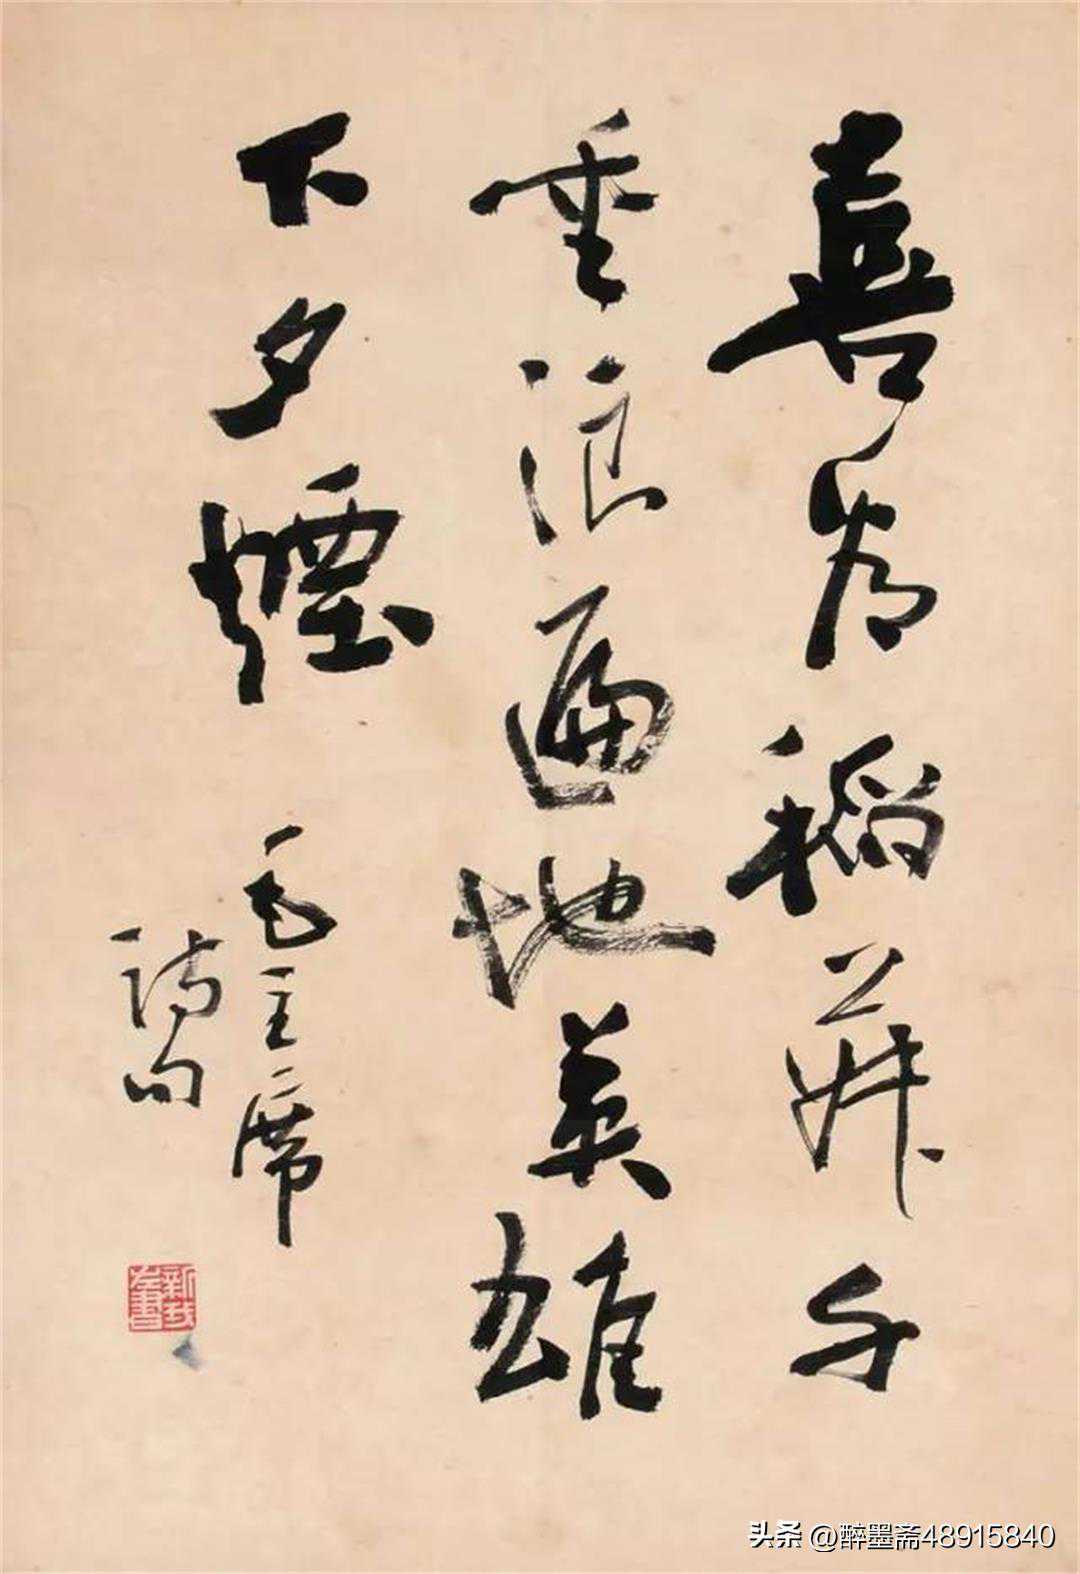 喜看稻菽千
重浪遍地英雄
下夕煙
毛主席
詩句
新我
左書
头条 @醉墨斋48915840